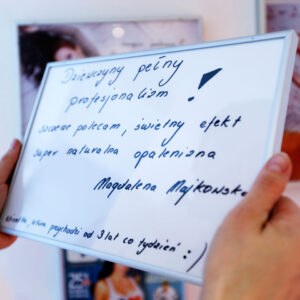 Dziewczyny pełny
profesjonalizm !
szczerze polecam, świetny efekt
super naturalna opalenizna
Magdalena Majkowska
która przychodzi od 3 lat co tydzień :)
25